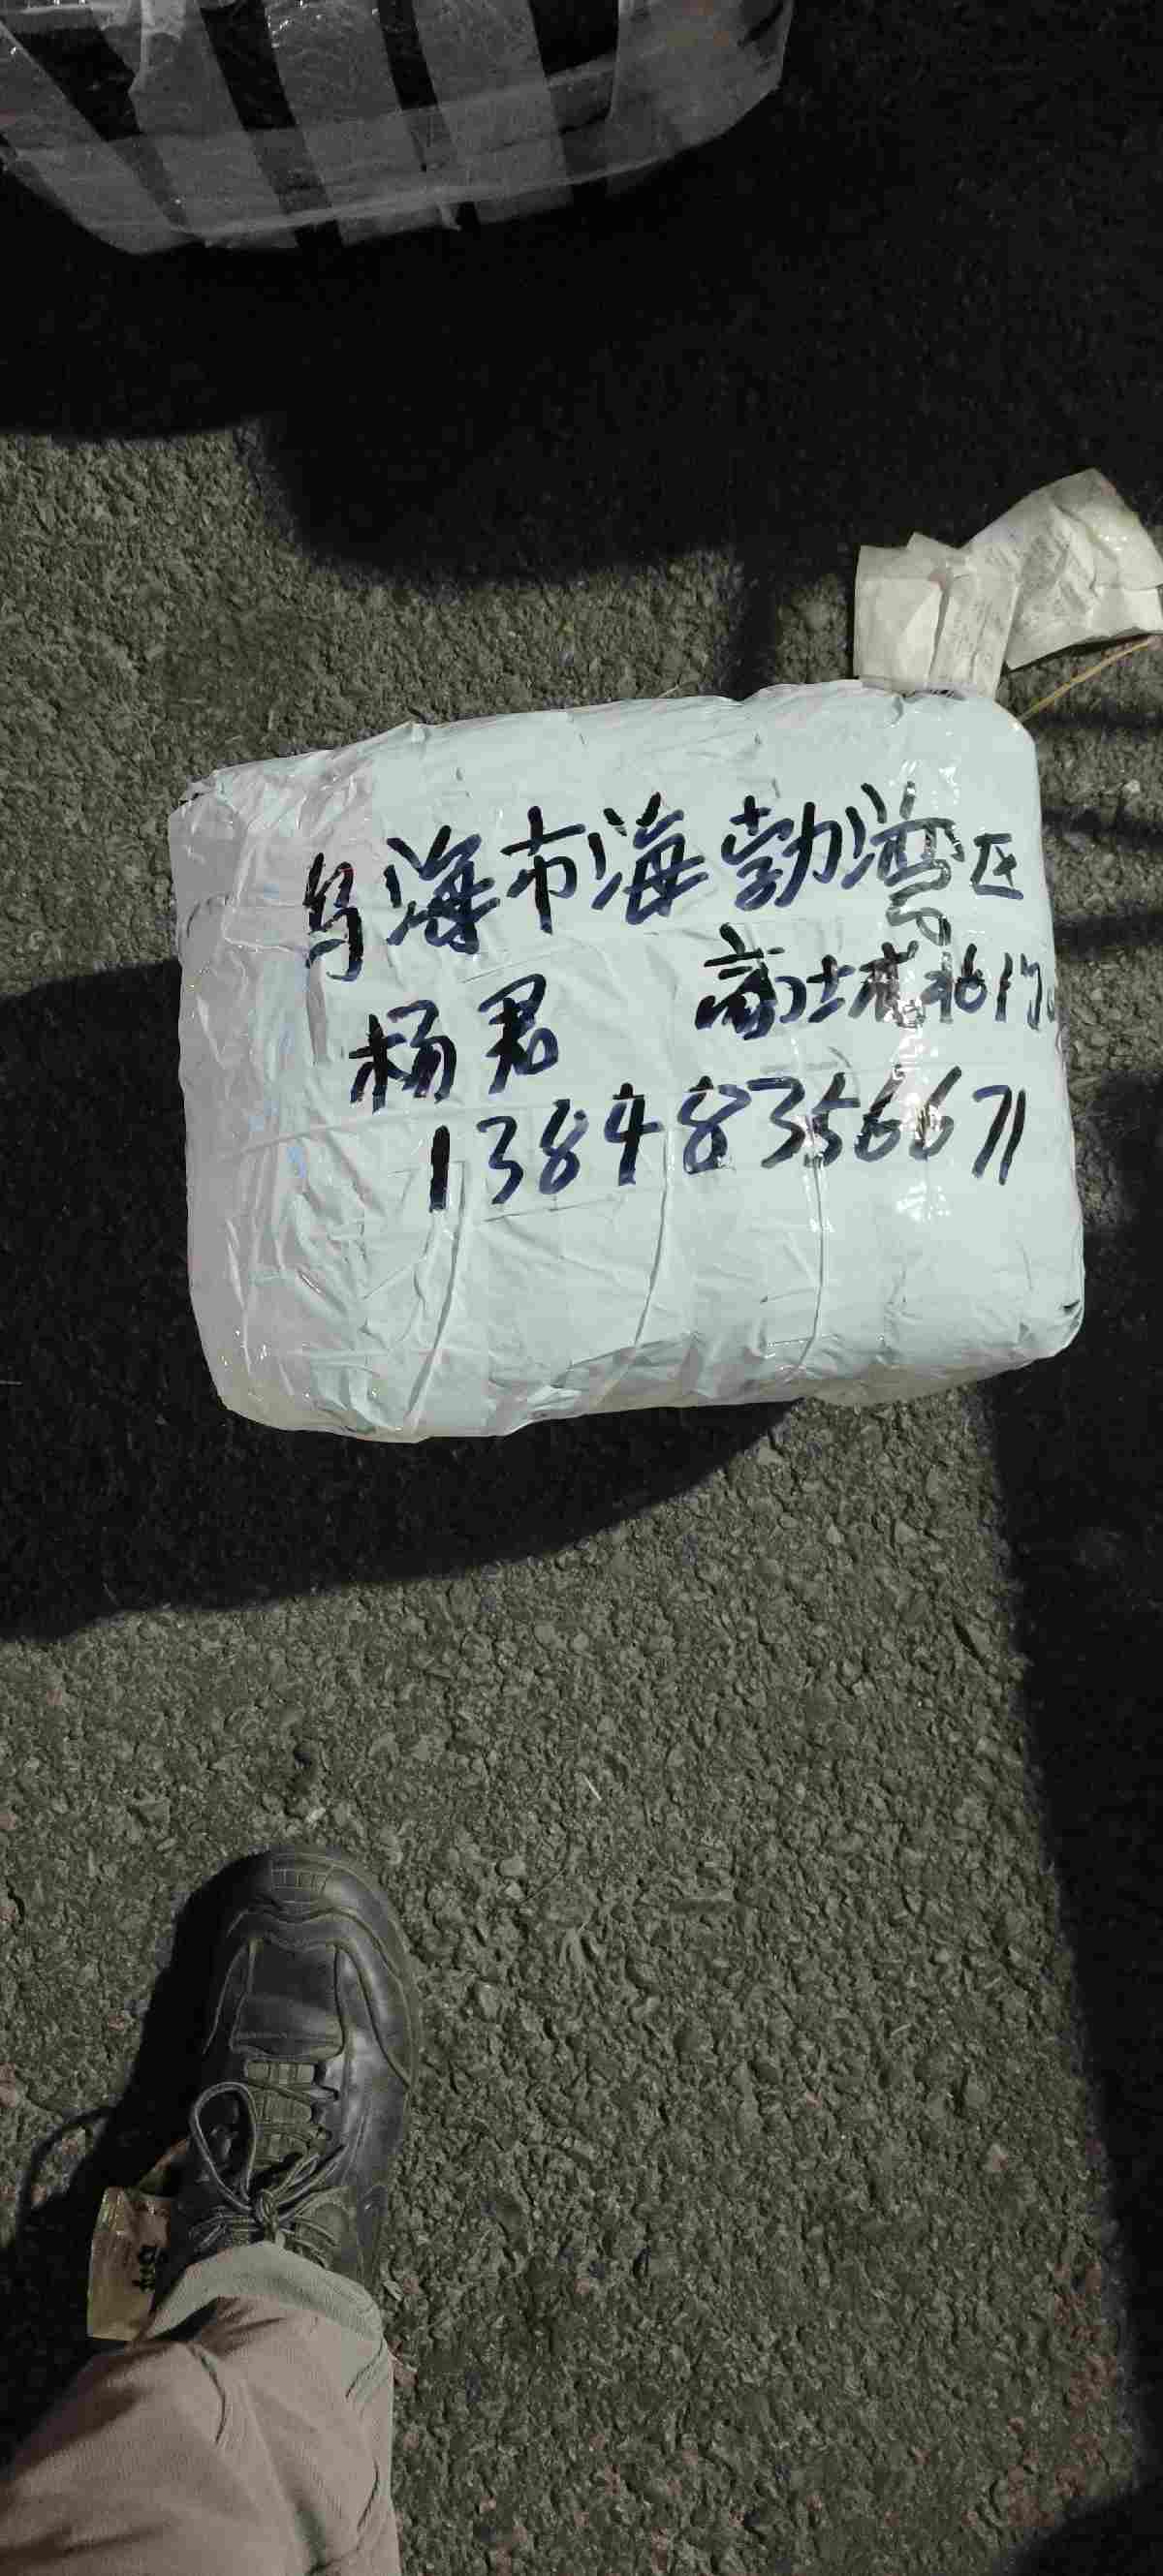 乌海市海勃湾区
富士城北门
杨君
13848356671